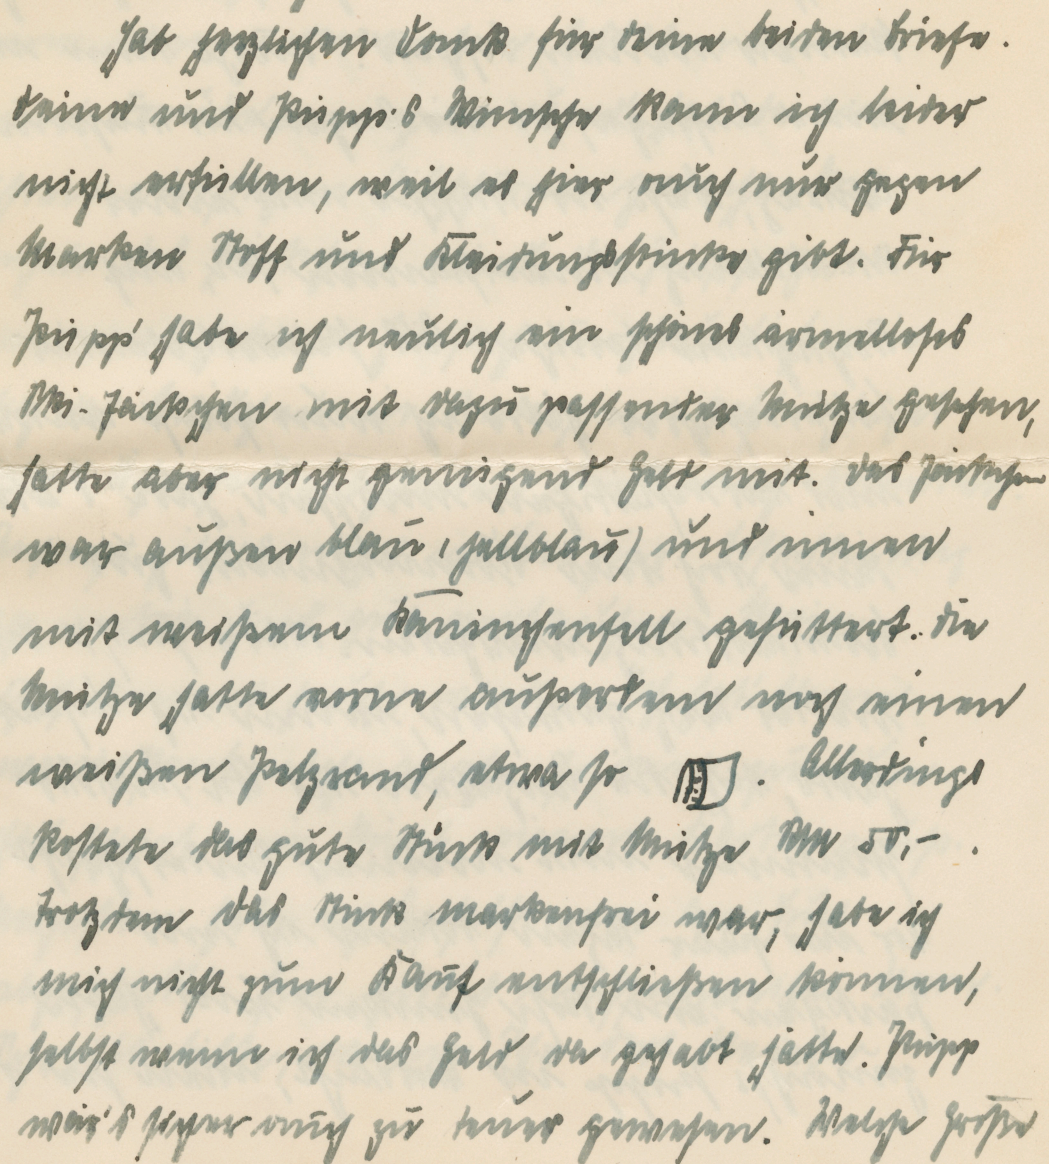 Hab herzlichen Dank für deine beiden Briefe.
Deine und Püpp's Wünsche kann ich leider
nicht erfüllen, weil es hier auch nur gegen
Marken Stoff und Kleidungsstücke gibt. Für
Püpp habe ich neulich ein schönes ärmelloses
Ski-Jäckchen mit dazu passender Mütze gesehen,
hatte aber nicht genügend Geld mit. Das Jäckchen
war außen blau (hellblau) und innen
mit weißem Kaninchenfell gefüttert. Die
Mütze hatte vorne außerdem noch einen
weißen Pelzrand, etwa so . Allerdings
kostete das gute Stück mit Mütze RM 50,- .
Trotzdem das Stück markenfrei war, habe ich
mich nicht zum Kauf entschließen können,
selbst wenn ich das Geld da gehabt hätte. Püpp
wär's sicher auch zu teuer gewesen. Welche Größe